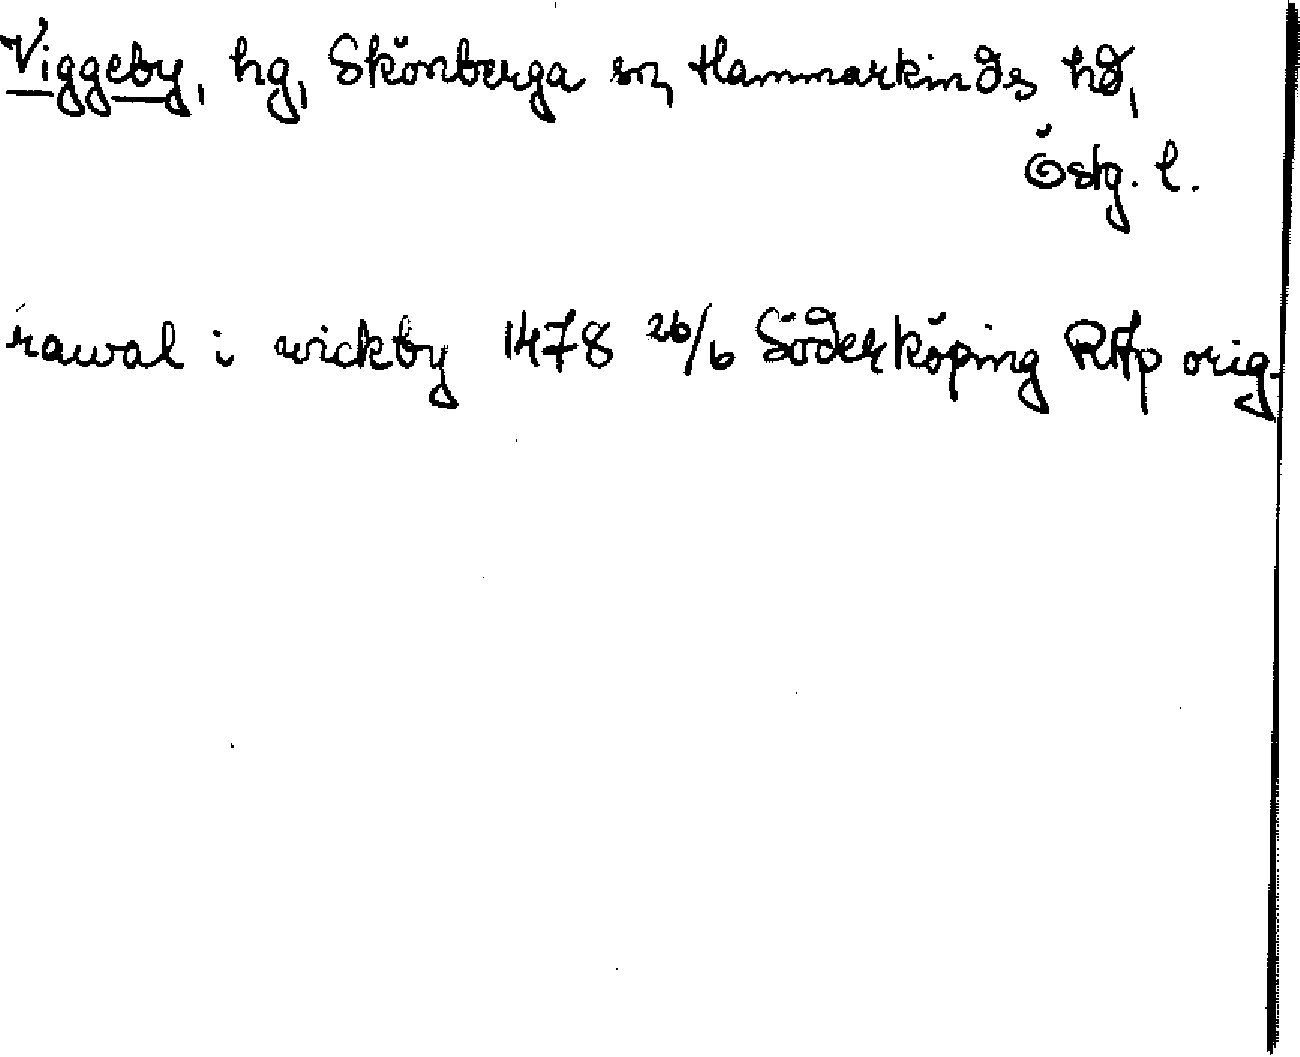 Viggeby, hg, Skönberga sn, Hammarkinds hd,
Östg. l.
rawal i wickby 1478 26/6 Söderköping RAp orig.